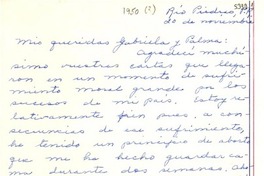 1950 (?)
Río Piedras, P.R.
20 de noviembre
Mis queridas Gabriela y Palma:
Agradecí muchí-
simo vuestras cartas que llega-
ron en un momento de sufri-
miento moral grande por los
sucesos de mi país. Estoy re-
lativamente bien pues, a con-
secuencias de ese sufrimiento,
he tenido un principio de aborto
que me ha hecho guardar ca-
ma durante dos semanas. Aho-